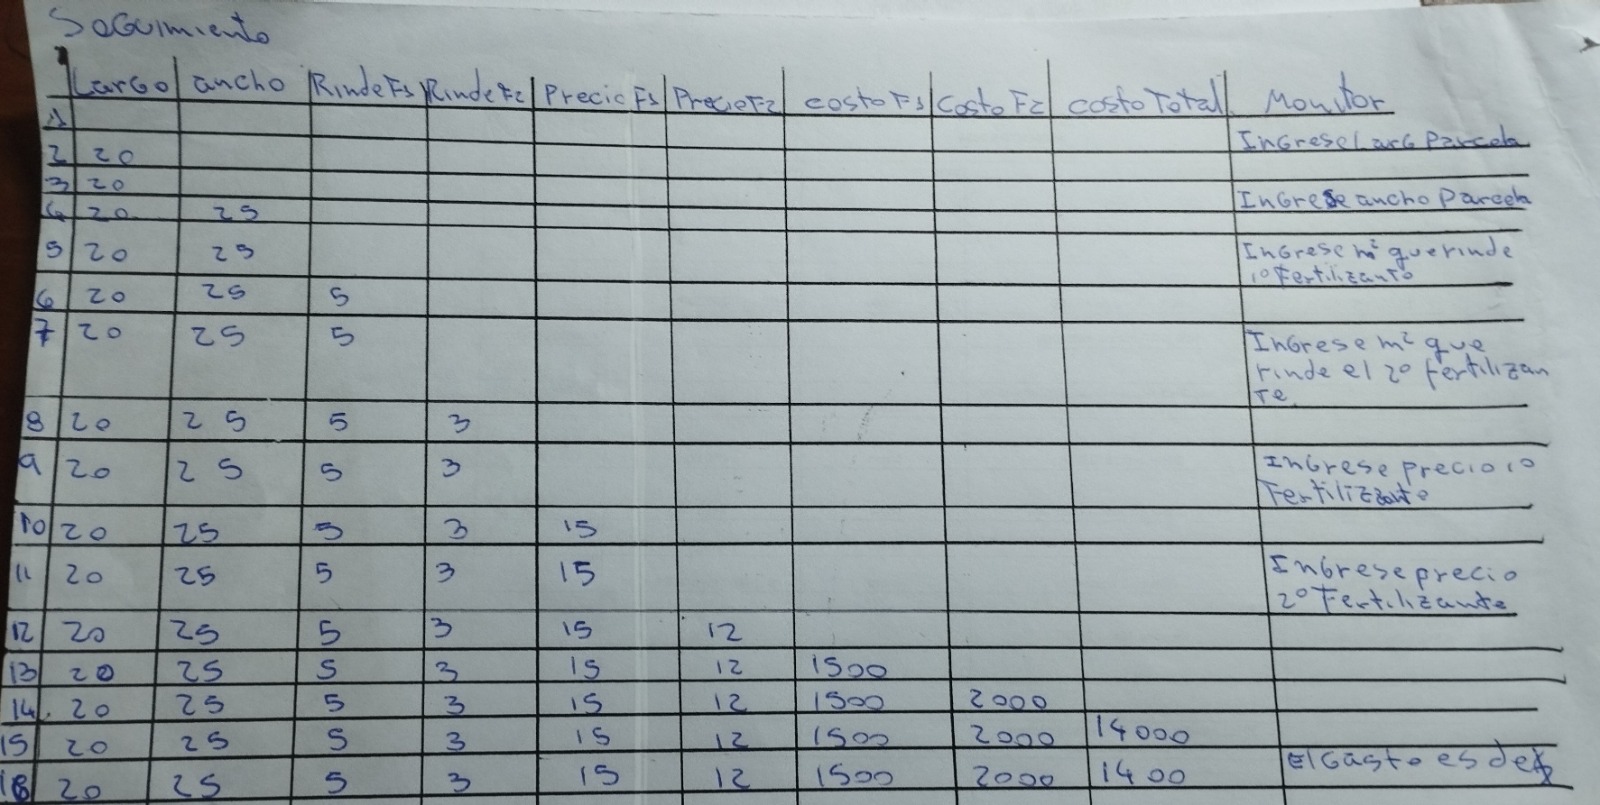 Seguimiento
Largo ancho RindeF1 RindeF2 PrecioF1 PrecioF2 costoF1 CostoF2 costoTotal Monitor
1 IngreseLarg Parcela
2 20
3 20 Ingrese ancho Parcela
4 20 25
5 20 25 Ingrese m² que rinde
1º Fertilizante
6 20 25 5
7 20 25 5 Ingrese m² que
rinde el 2º fertilizan
te
8 20 25 5 3
9 20 25 5 3 Ingrese precio 1º
Fertilizante
10 20 25 5 3 15
11 20 25 5 3 15 Ingrese precio
2º Fertilizante
12 20 25 5 3 15 12
13 20 25 5 3 15 12 1500
14 20 25 5 3 15 12 1500 2000
15 20 25 5 3 15 12 1500 2000 14000
16 20 25 5 3 15 12 1500 2000 1400 El Gasto es de